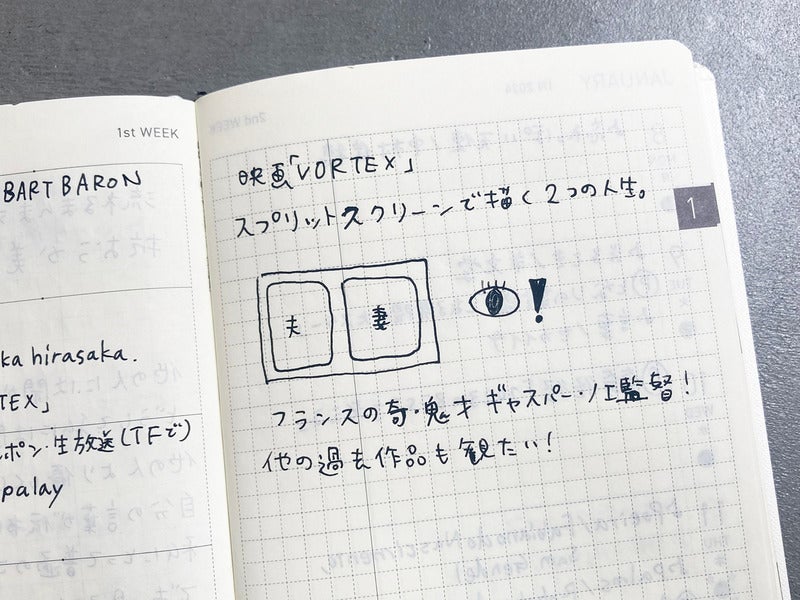 1st WEEK
BART BARON
ka hirasaka.
TEX」
ポン・生放送(TFで)
palay
映画「VORTEX」
スプリットスクリーンで描く2つの人生。
夫 妻
!
フランスの奇・鬼才ギャスパー・ノエ監督!
他の過去作品も観たい!
1